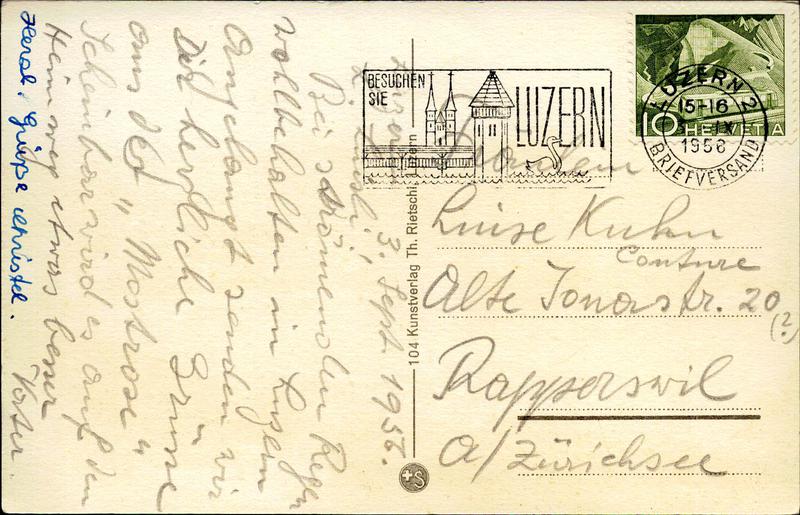 Luzern,
z. "Rössli", 3. Sept. 1956.
Bei strömendem Regen
wohlbehalten in Luzern
Angelangt senden wir
Dir herzliche Grüsse
aus der "Mostrose"
Scheinbar wird es auf den
Heimweg etwas besser
Vater.
Herzl. Grüße Christel.
104 Kunstverlag Th. Rietschi, Luzern
S
BESUCHEN
SIE
LUZERN
LUZERN 2
15-16
IX
1956
BRIEFVERSAND
10 HELVETIA
Fräulein
Luise Kuhn
Couture
Alte Jonastr. 20
(?)
Rapperswil
a/Zürichsee